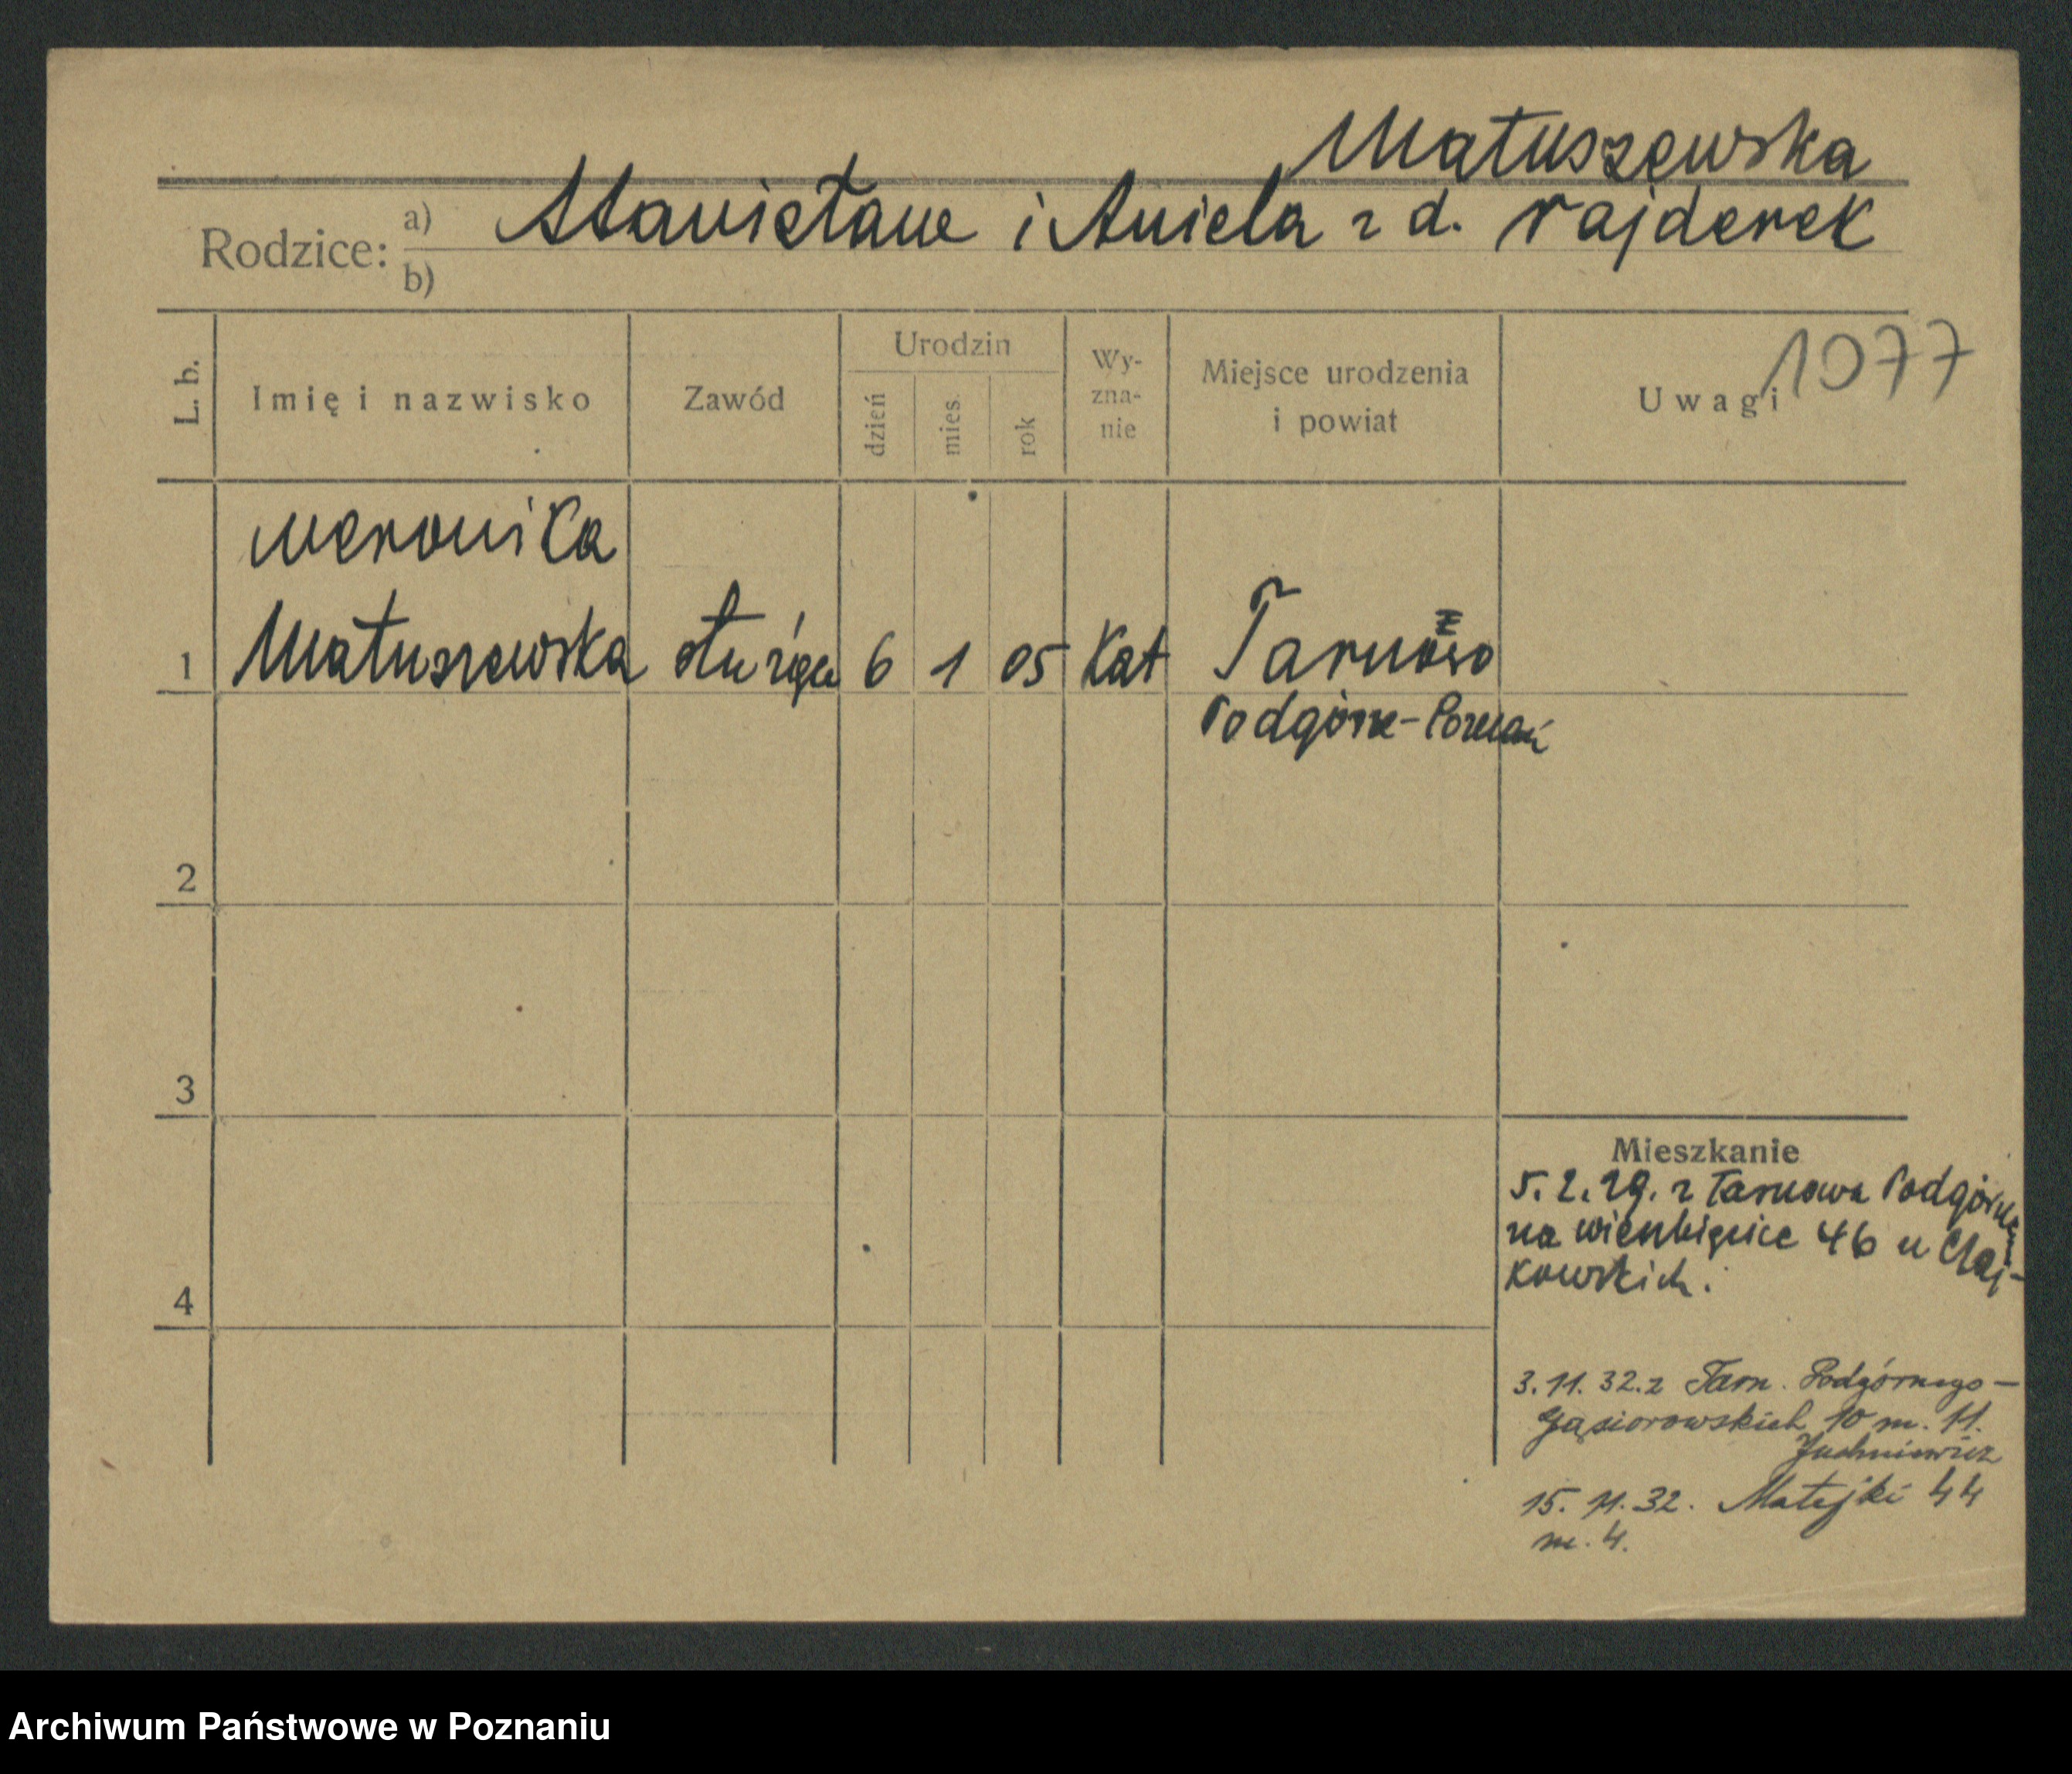 Matuszewska
Rodzice: a) Stanisław i Aniela z d. rajderek
b)
L. b.
Imię i nazwisko
Zawód
Urodzin
dzień
mies.
rok
Wy-
zna-
nie
Miejsce urodzenia
i powiat
Uwagi
1077
Weronika
1 Matuszewska służąca 6 1 05 Kat Tarnowo
Podgórne-Poznań
2
3
4
Mieszkanie
5.2.29. z Tarnowa Podgórne
na wierzbięcice 46 u
kowskich.
3.11.32. z Tarn. Podgórnego-
Gąsiorowskich 10 m. 11.
Juchniewicz
15.11.32. Matejki 44
m. 4.
Archiwum Państwowe w Poznaniu